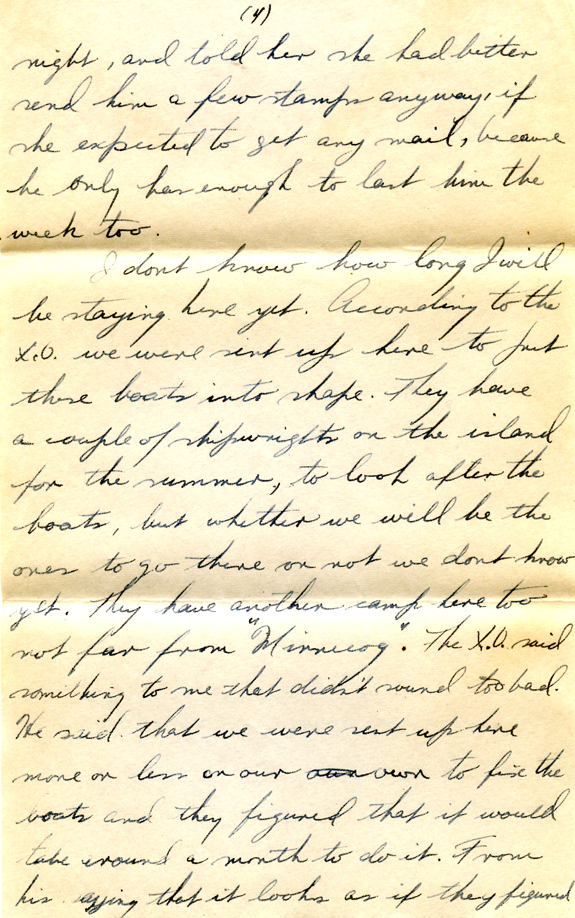 (4)
night, and told her she had better
send him a few stamps anyway, if
she expected to get any mail, because
he only has enough to last him the
week too.
I dont know how long I will
be staying here yet. According to the
X.O. we were sent up here to put
these boats into shape. They have
a couple of shipwrights on the island
for the summer, to look after the
boats, but whether we will be the
ones to go there or not we dont know
yet. They have another camp here too
not far from "Minnecog". The X.O. said
something to me that didn't sound too bad.
He said that we were sent up here
more or less on our own to fix the
boats and they figured that it would
take around a month to do it. From
his saying that it looks as if they figured